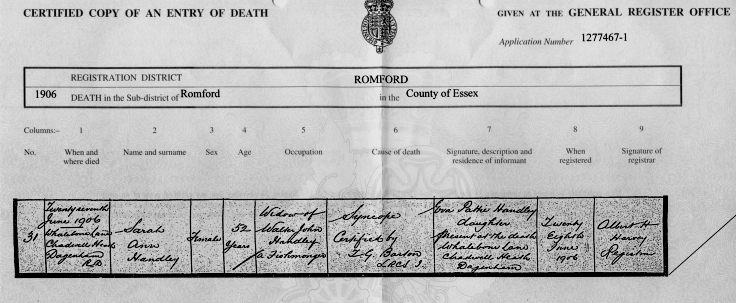 CERTIFIED COPY OF AN ENTRY OF DEATH
GIVEN AT THE GENERAL REGISTER OFFICE
Application Number 1277467-1
REGISTRATION DISTRICT ROMFORD
1906 DEATH in the Sub-district of Romford in the County of Essex
Columns:- 1 2 3 4 5 6 7 8 9
No. When and where died Name and surname Sex Age Occupation Cause of death Signature, description and residence of informant When registered Signature of registrar
31
Twenty seventh
June 1906
Whalebone Lane
Chadwell Heath
Dagenham
R.D.
Sarah
Ann
Handley
Female
52
Years
Widow of
Walter John
Handley
a Fishmonger
Syncope
Certified by
G. Barton
L.R.C.S. I.
Eva Pattie Handley
daughter
Present at the death
Whalebone Lane
Chadwell Heath
Dagenham
Twenty
Eighth
June
1906
Albert H
Harvey
Registrar